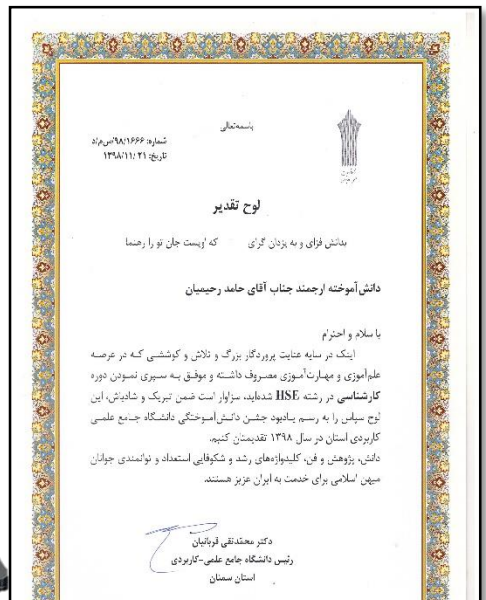 باسمه‌تعالی
شماره: ۹۸/۱۶۶۶/س‌م/د
تاریخ: ۱۳۹۸/۱۱/۲۱
لوح تقدیر
بدانش فزای و به یزدان گرای که اویست جان تو را رهنما
دانش‌آموخته ارجمند جناب آقای حامد رحیمیان
با سلام و احترام
اینک در سایه عنایت پروردگار بزرگ و تلاش و کوششی که در عرصه
علم‌آموزی و مهارت‌آموزی مصروف داشته و موفق به سپری نمودن دوره
کارشناسی در رشته HSE شده‌اید، سزاوار است ضمن تبریک و شادباش، این
لوح سپاس را به رسم یادبود جشن دانش‌آموختگی دانشگاه جامع علمی
کاربردی استان در سال ۱۳۹۸ تقدیمتان کنیم.
دانش، پژوهش و فن، کلیدواژه‌های رشد و شکوفایی استعداد و توانمندی جوانان
میهن اسلامی برای خدمت به ایران عزیز هستند.
دکتر محمدتقی قربانیان
رئیس دانشگاه جامع علمی-کاربردی
استان سمنان